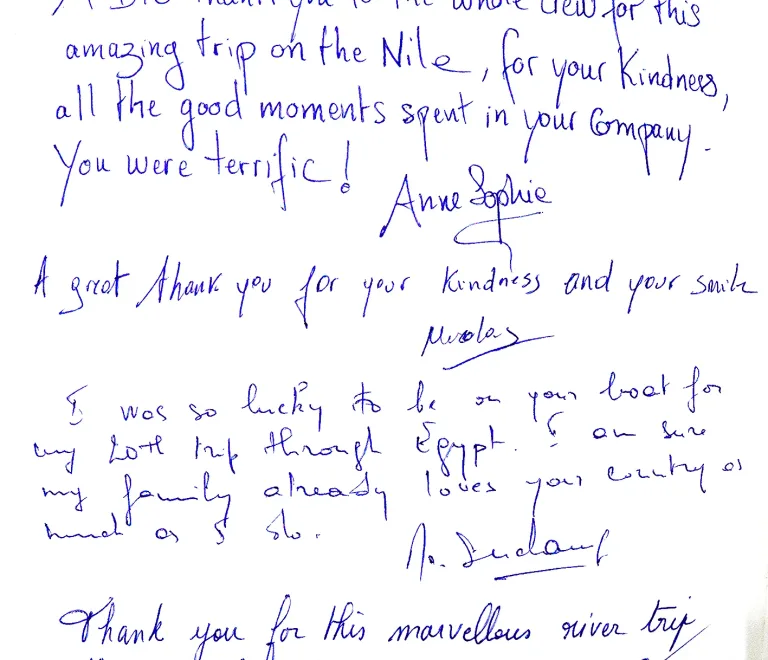 A Big thank you to the whole crew for this
amazing trip on the Nile, for your Kindness,
all the good moments spent in your Company.
You were terrific!
Anne Sophie
A great thank you for your kindness and your smile
Nicolas
I was so lucky to be on your boat for
my 20th trip through Egypt. I am sure
my family already loves your country as
much as I do.
Thank you for this marvellous river trip